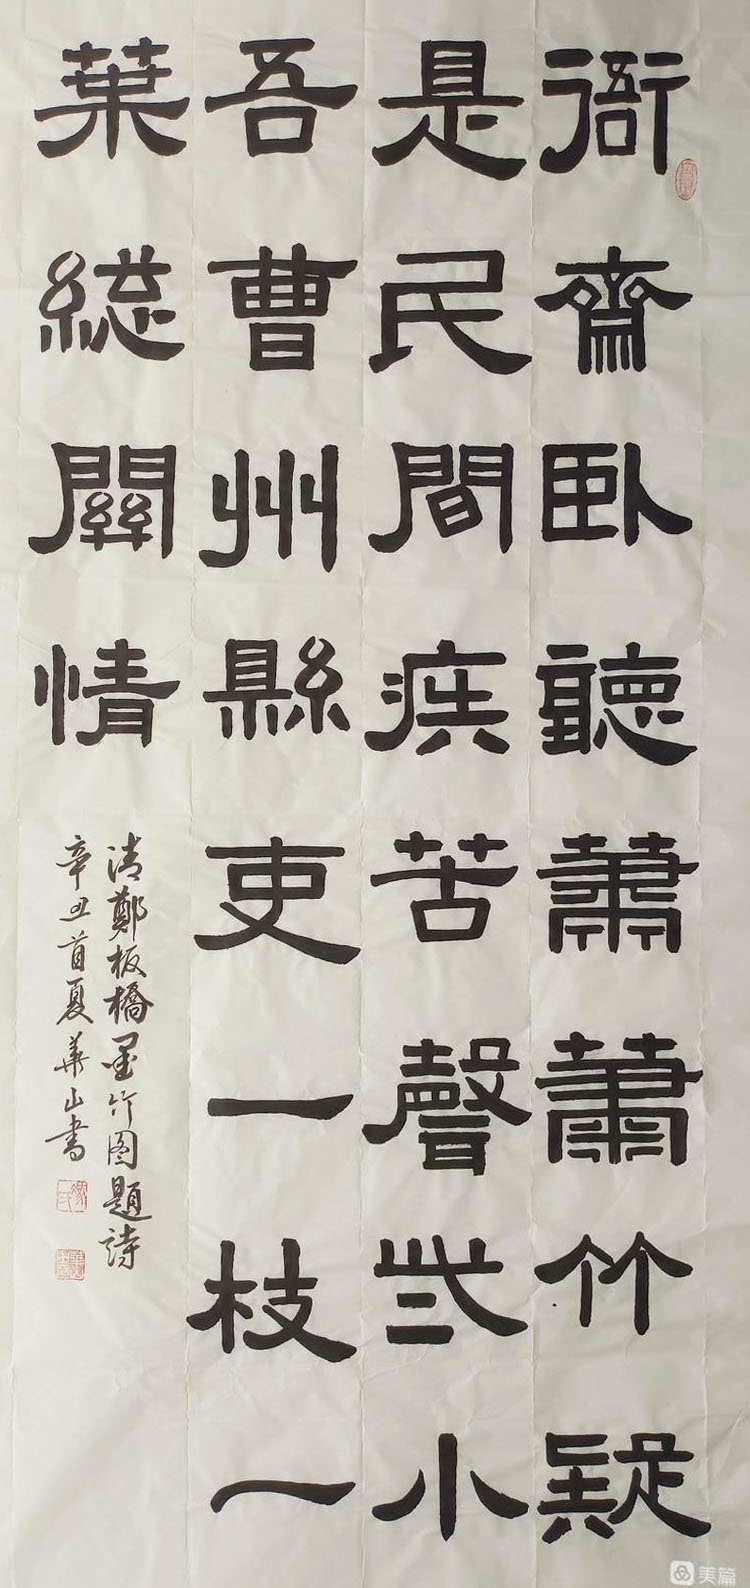 衙齋卧聽蕭蕭竹疑
是民間疾苦聲些小
吾曹州縣吏一枝一
葉総關情
清鄭板橋墨竹图題詩
辛丑首夏華山書
美篇